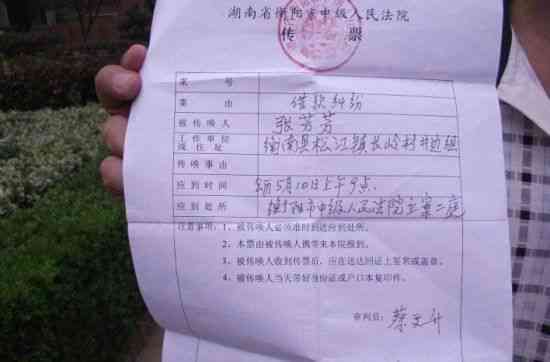 湖南省衡阳市中级人民法院
传 票
案 号
案 由 借款纠纷
被传唤人 张芳芳
工作单位
或住址 衡南县松江镇长岭村井边组
传唤事由
应到时间 5月10日上午9点
应到处所 衡阳市中级人民法院立案二庭
注意事项:1、被传唤人必须准时到达应到处所。
2、本票由被传唤人携带来本院报到。
3、被传唤人收到传票后,应在送达回证上签名或盖章。
4、被传唤人当天带好身份证或户口本复印件。
审判员:蔡文升